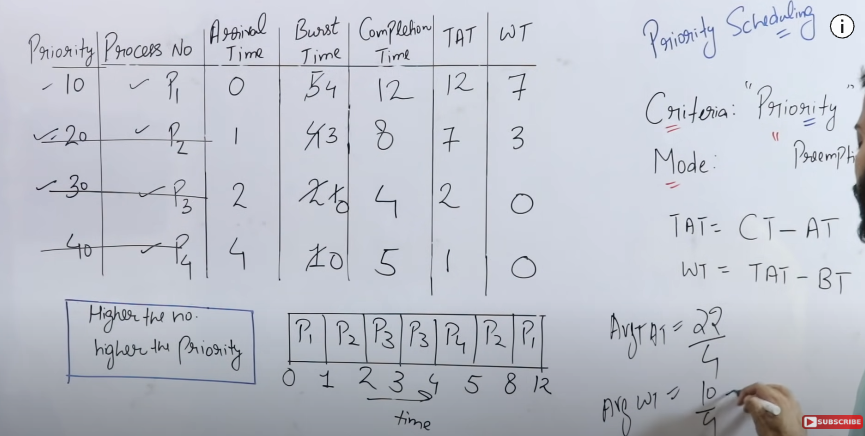 Priority Process No Arrival Time Burst Time Completion Time TAT WT
10 P1 0 5 4 12 12 7
20 P2 1 4 3 8 7 3
30 P3 2 2 1 0 4 2 0
40 P4 4 1 0 5 1 0
Higher the no.
higher the Priority
P1 P2 P3 P3 P4 P2 P1
0 1 2 3 4 5 8 12
time
Priority Scheduling
Criteria: "Priority"
Mode: "Preempti
TAT = CT - AT
WT = TAT - BT
Avg TAT = 22/4
Avg WT = 10/4
i
SUBSCRIBE